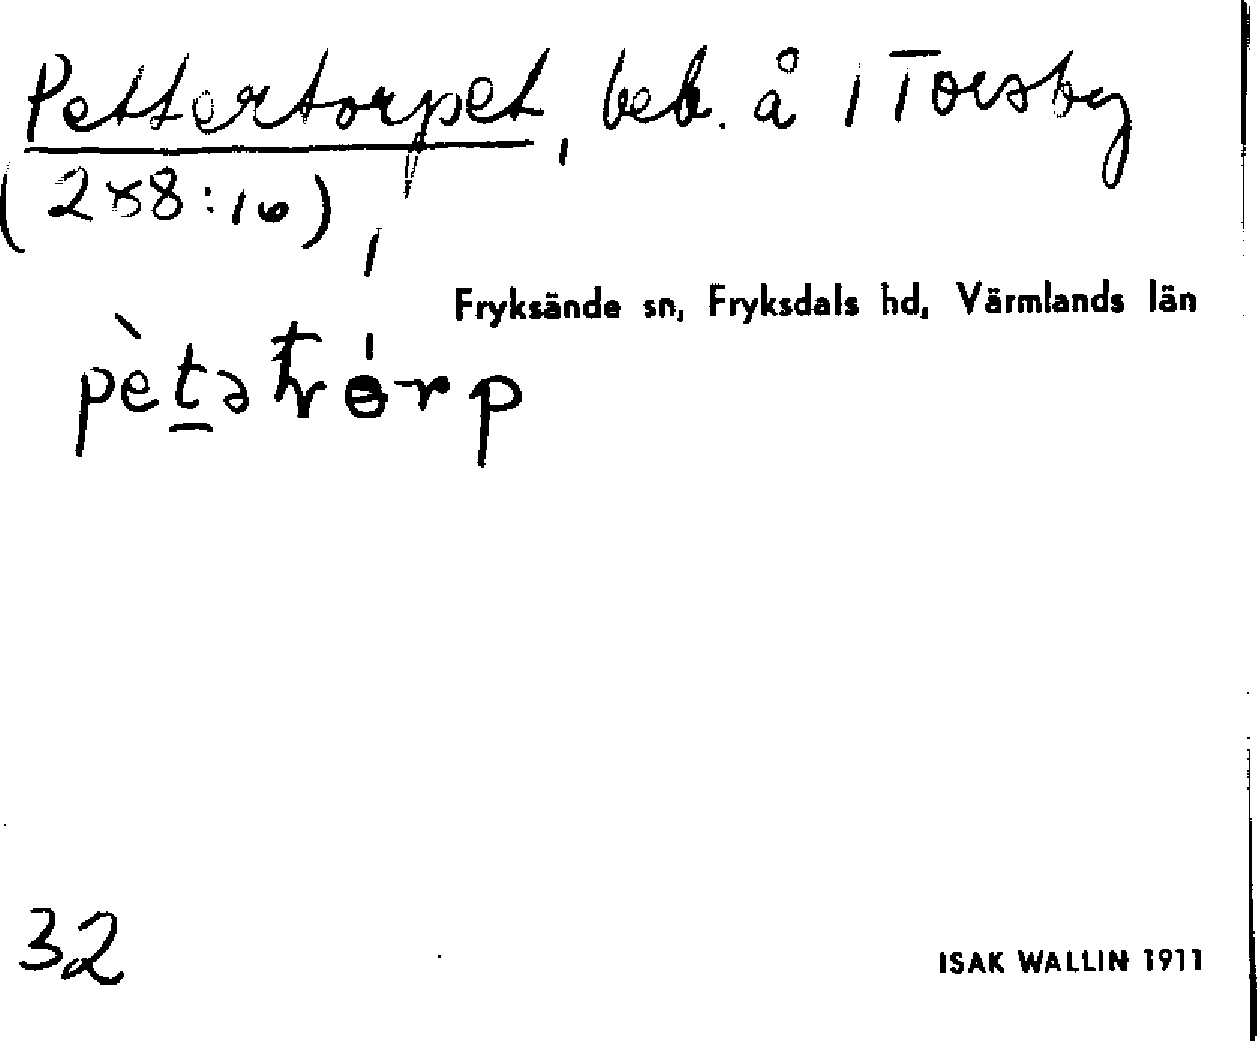 Pettertorpet, beb. å 1 Torsby
(258:16),
Fryksände sn, Fryksdals hd, Värmlands län
32
ISAK WALLIN 1911